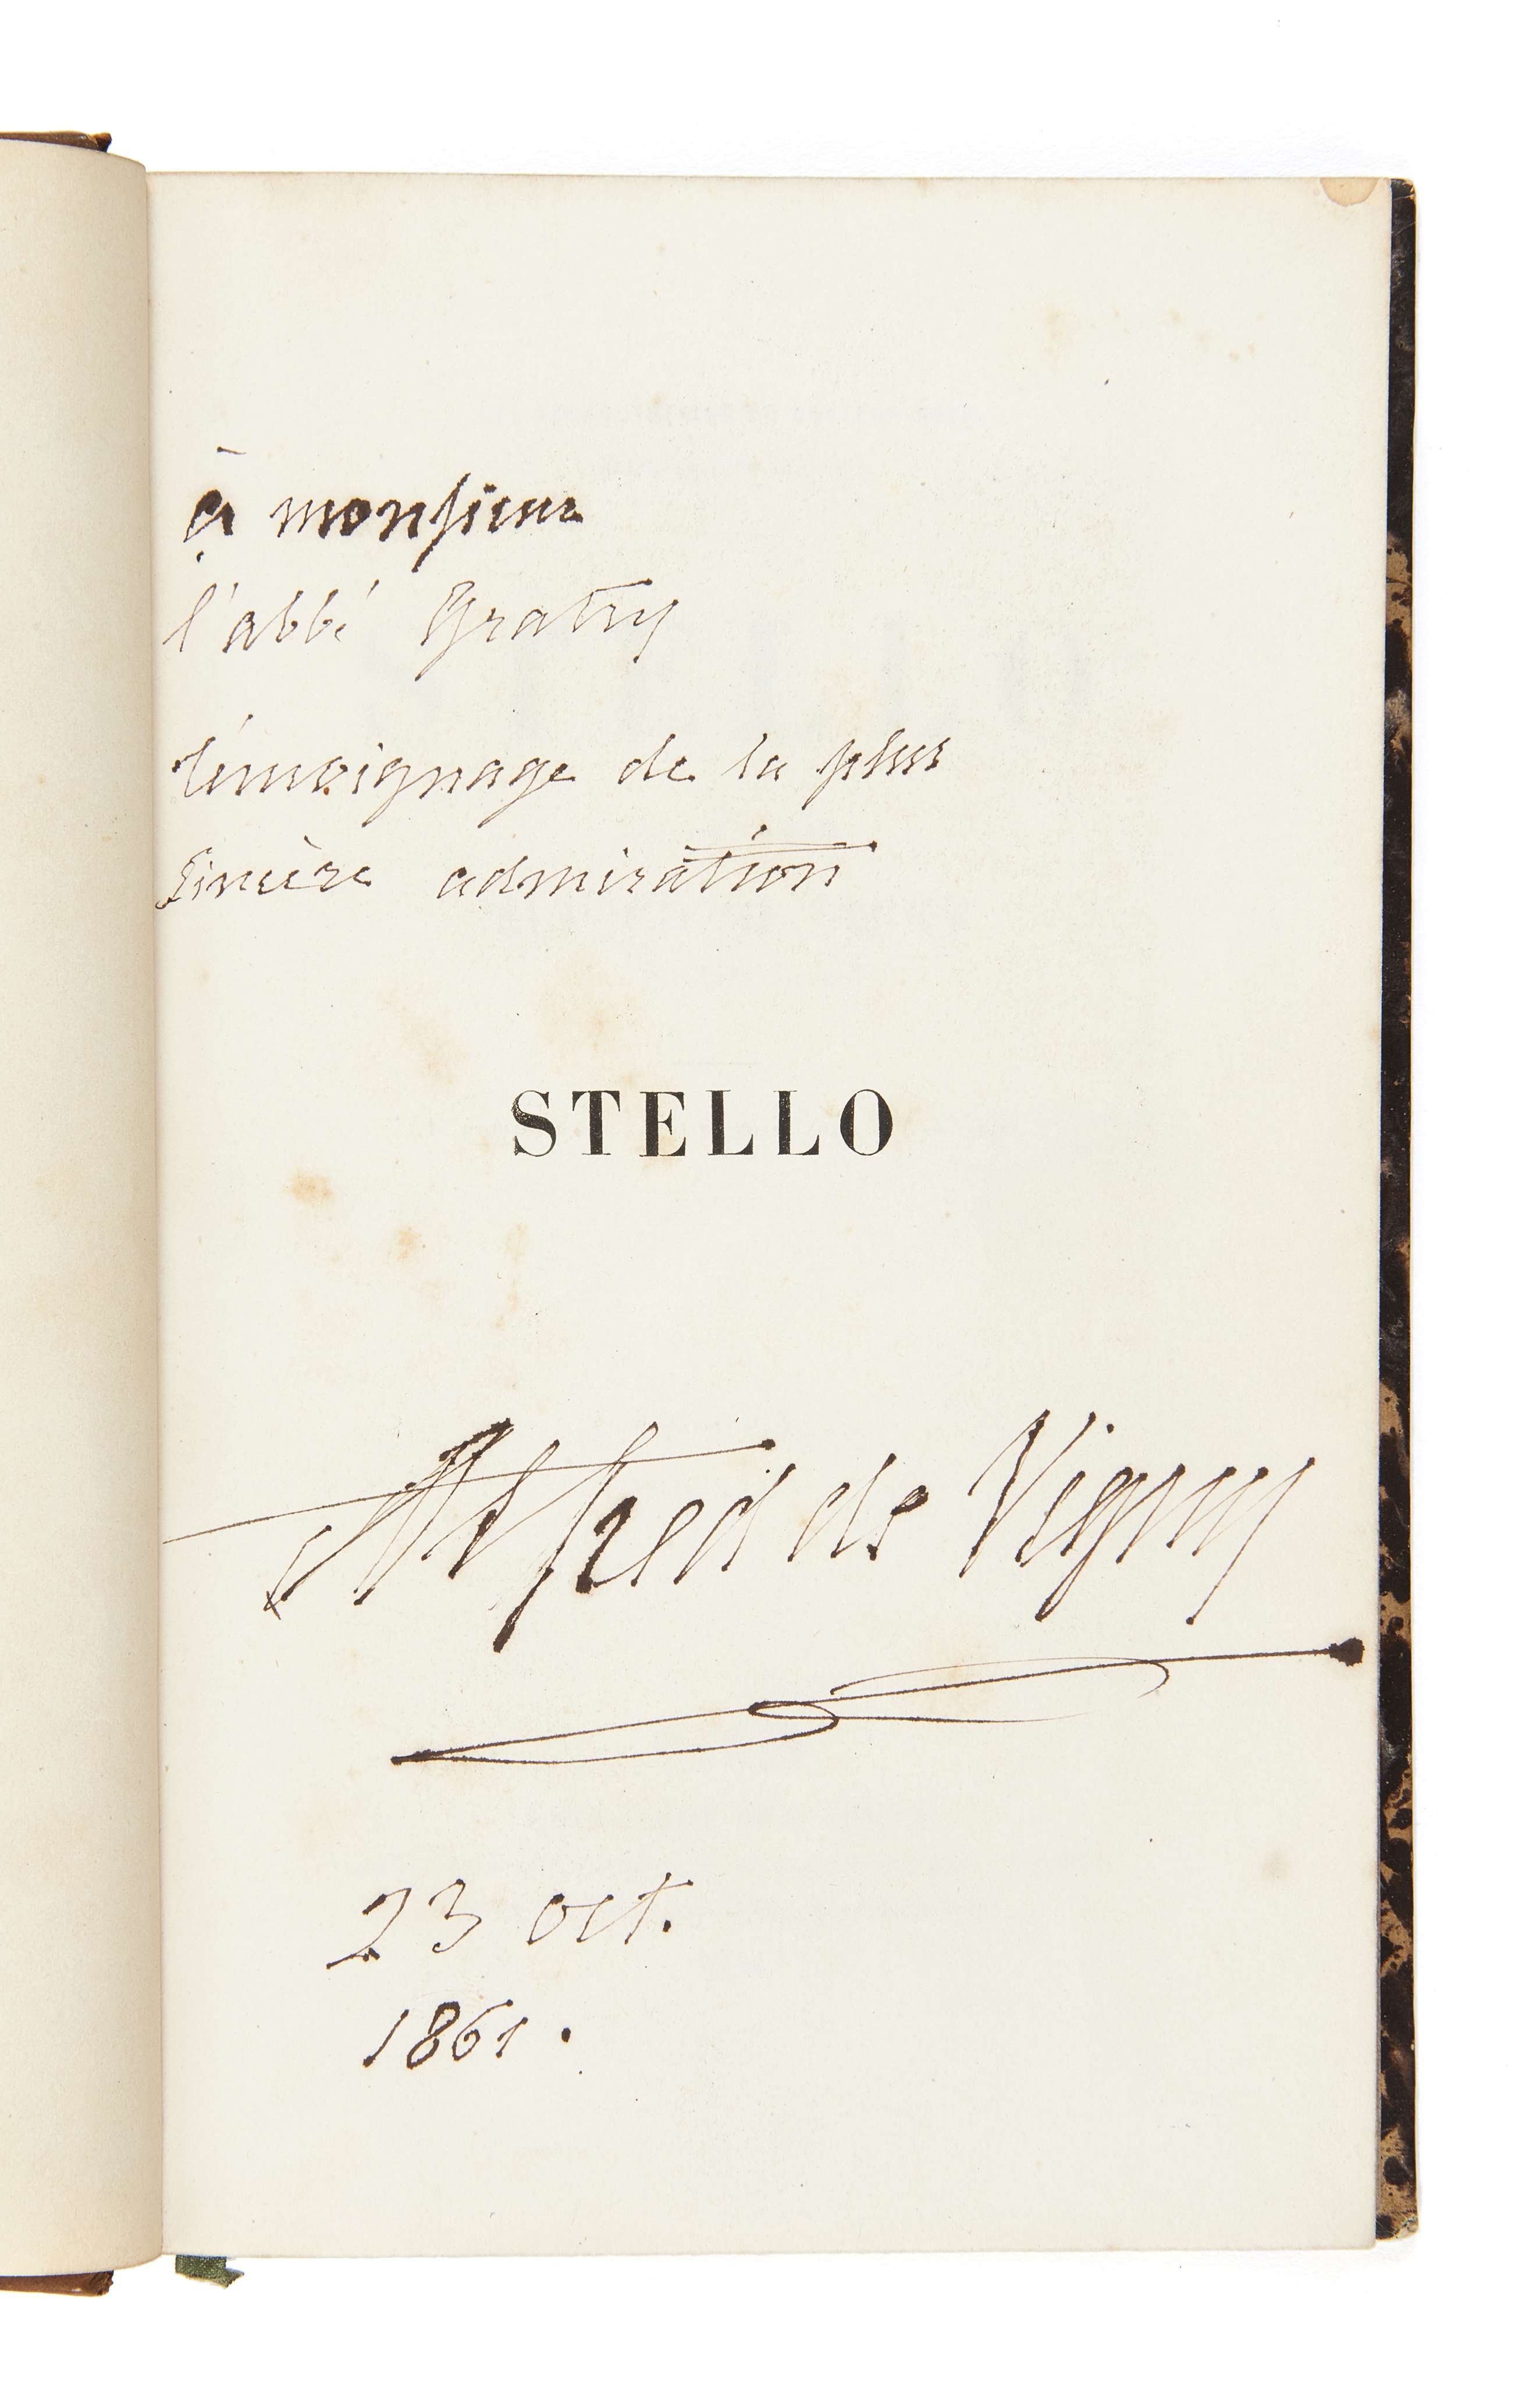 à monsieur
l'abbé Gratry
témoignage de la plus
sincère admiration
STELLO
Alfred de Vigny
23 oct.
1861.